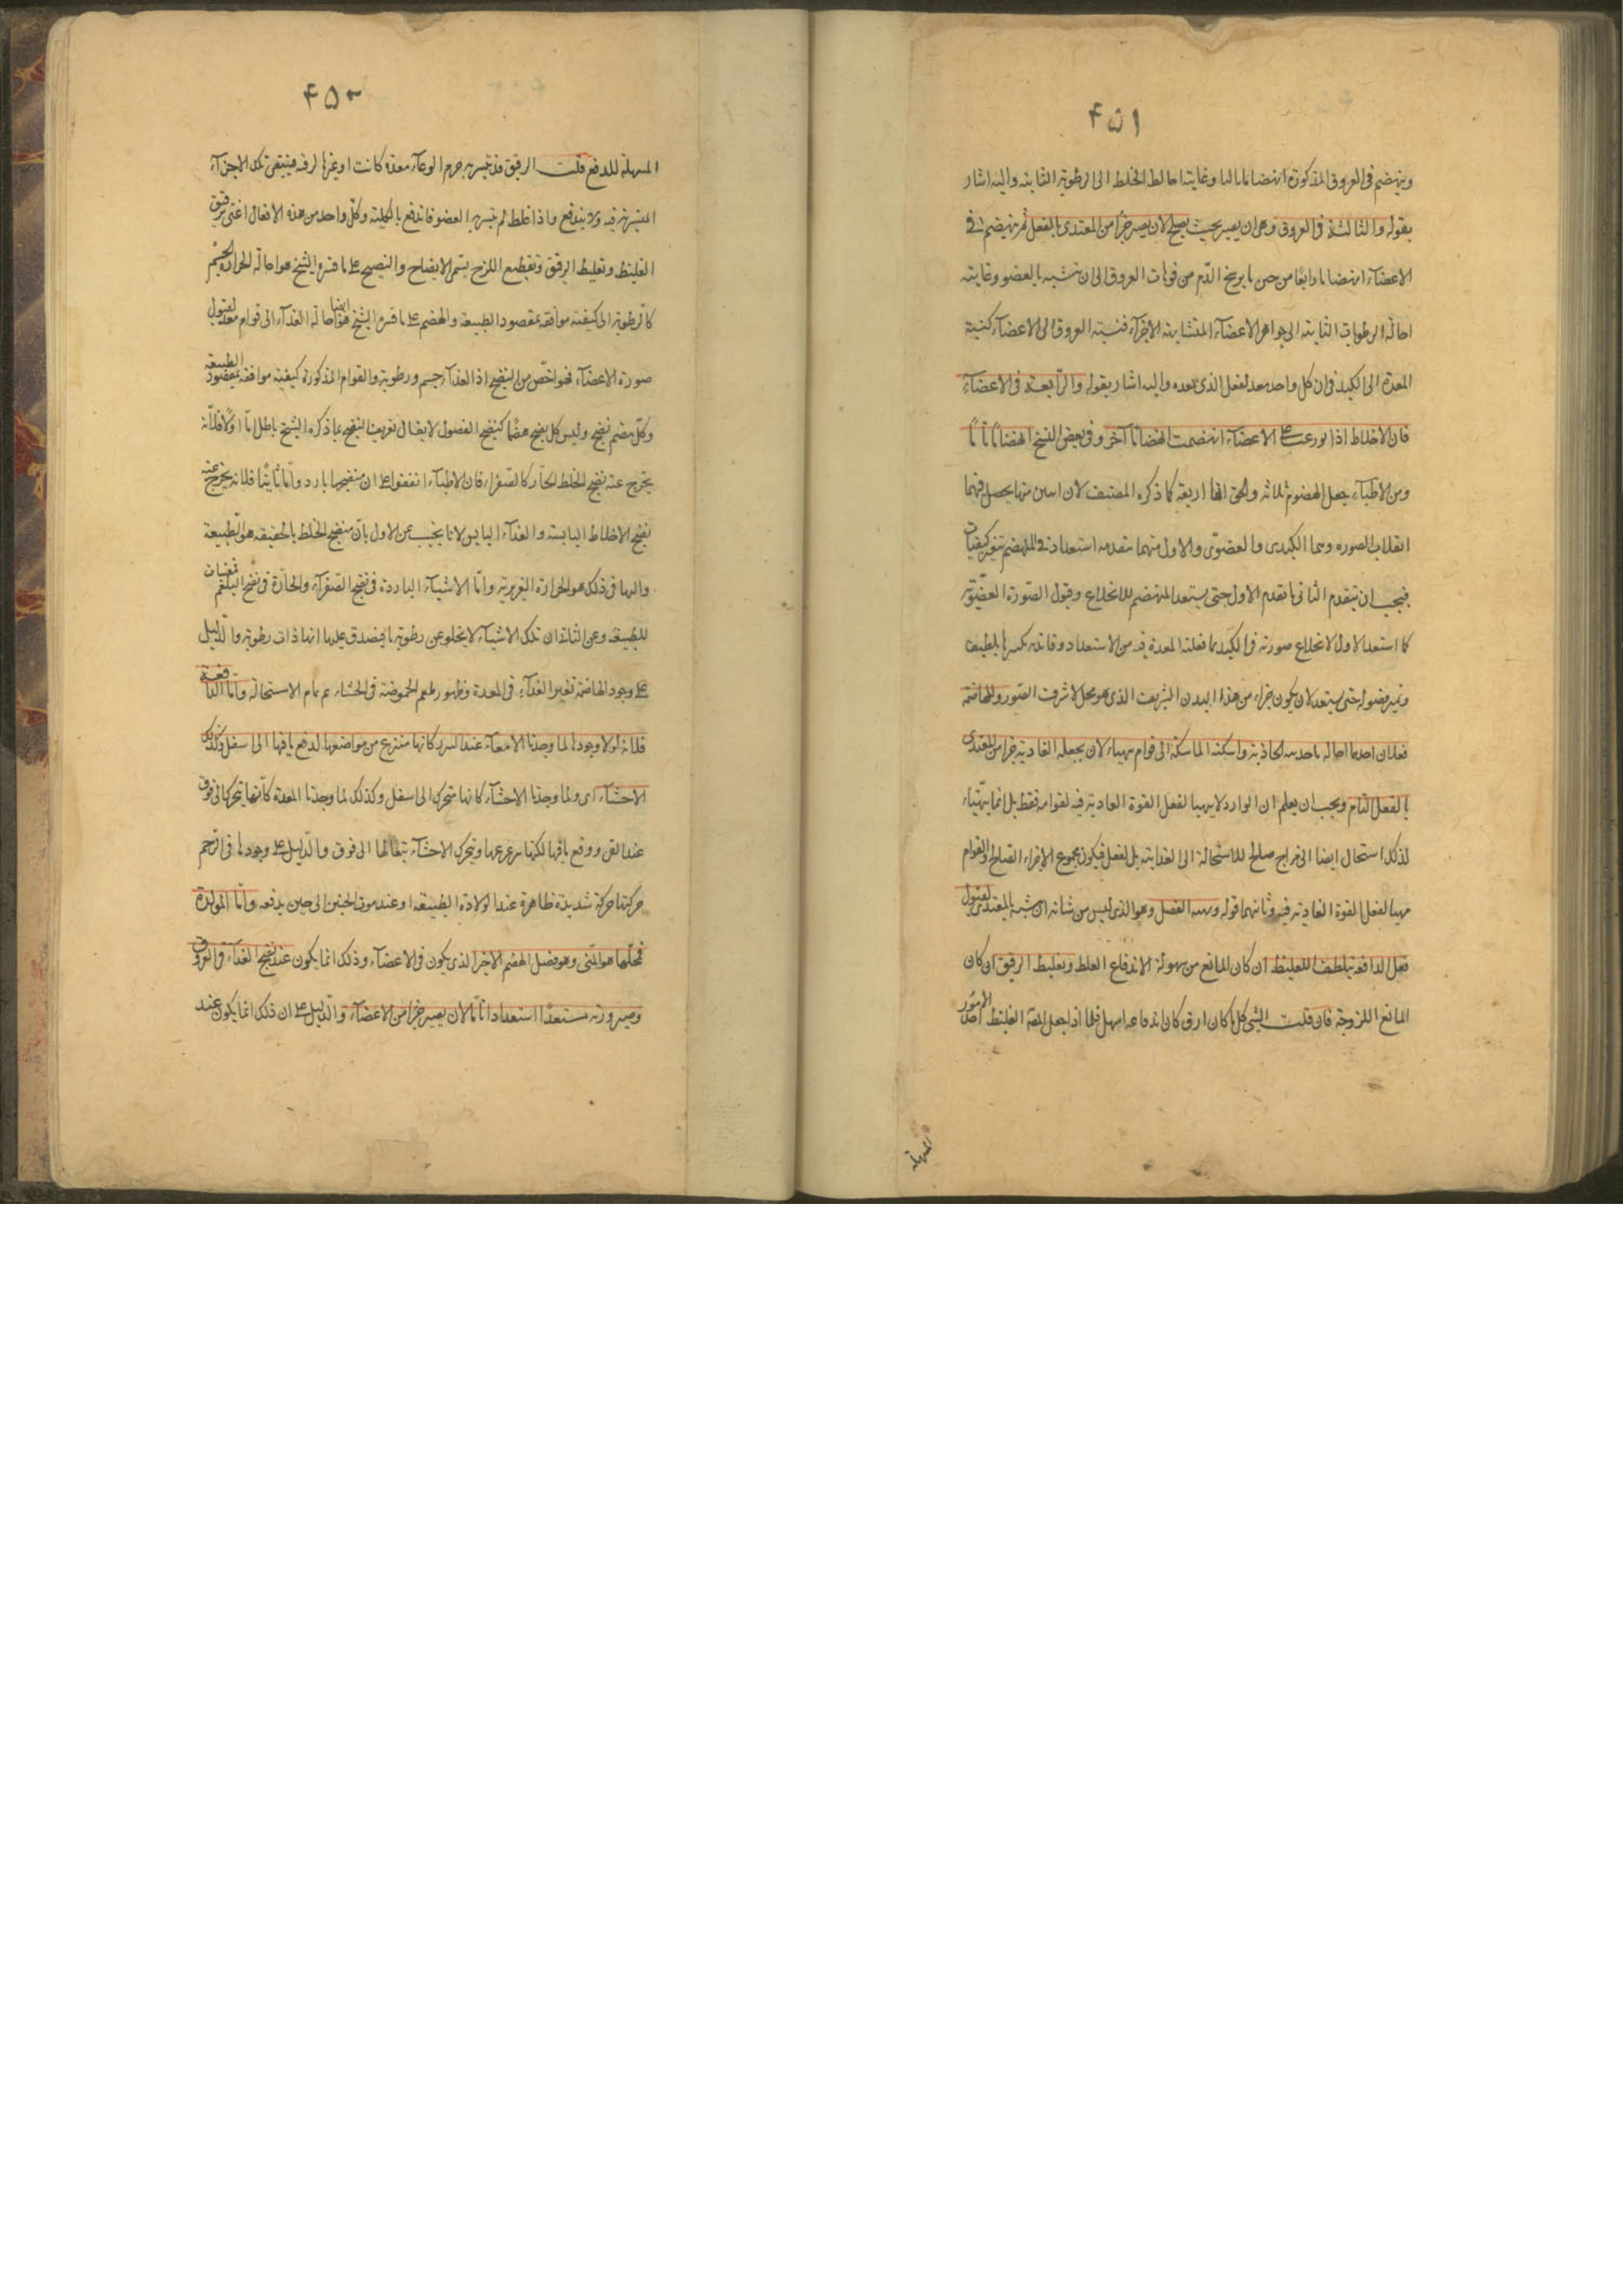 ۴۵۱
وينهضم فى العروق المذكورة انهضاما ثالثا وغايته احالة الخلط الى الرطوبة الثانية واليه اشار
بقوله والثالثة فى العروق وهى ان يصير بحيث يصلح لان يصير جزأ من المغتذى بالفعل ثم ينهضم فى
الاعضاء انهضاما رابعا من حين ما يرشح الدم من فوهات العروق الى ان يتشبه بالعضو وغايته
احالة الرطوبات الثانية الى جواهر الاعضاء المتشابهة الاجزاء فنسبة العروق الى الاعضاء كنسبة
المعدة الى الكبد فى ان كل واحد معد لفعل الذى بعده واليه اشار بقوله والرابعة فى الاعضاء
فان الاخلاط اذا توزعت على الاعضاء انهضمت انهضاما آخر وفى بعض النسخ انهضاما تاما
ومن الاطباء جعل الهضوم ثلاثة والحق انها اربعة كما ذكره المصنف لان اثنين منها يحصل فيهما
انقلاب الصورة وهما الكبدى والعضوى والاول منهما يتقدمه استعداد فى المنهضم بتغير كيفيات
فيجب ان يتقدم الثانى ما تقدم الاول حتى يستعد المنهضم للانخلاع وقبول الصورة العضوية
كما استعد الاول لانخلاع صورته فى الكبد بما فعلته المعدة فيه من الاستعداد
وتميز فضوله حتى يستعد لان يكون جزء من هذا البدن الشريف الذى هو محل لاشرف الصور وللهاضمة
فعلان احدهما احالة ما جذبته الجاذبة وامسكته الماسكة الى قوام مهياء لان يجعله الغاذية جزأ من المغتذى
بالفعل التام ويجب ان يعلم ان الوارد لا يتهيا لفعل القوة الغاذية فيه لقوامه فقط بل انما يتهياء
لذلك استحال ايضا الى مزاج صالح للاستحالة الى الغذائية بالفعل فيكون مجموع الاجزاء الصالح والقوام
مهيا لفعل القوة الغاذية فيه وثانيهما قوله وتهيئة الفضل وهو الذى ليس من شانه ان يتشبه بالمغتذى لقبول
فعل الدافعة بتلطف الغليظ ان كان المانع من سهولة الاندفاع الغلظ وتغليظ الرقيق ان كان
المانع اللزوجة فان قلت الشى كلما كان ارق كان اندفاعه اسهل فلماذا جعل المص الغليظ احد الامور
المسهلة
۴۵۲
المسهلة للدفع قلت الرقيق قد يتشربه جرم الوعاء معدة كانت او غيرها لرقته فيبقى تلك الاجزاء
المتشربة فيه ولا يندفع واذا غلظ لم يتشربه العضو فاندفع بالكلية وكل واحد من هذه الافعال اعنى ترقيق
الغليظ وتغليظ الرقيق وتقطيع اللزج يسمى الانضاج والنضج على ما فسره الشيخ هو احالة الحرارة الجسم
كالرطوبة الى كيفية موافقة بمقصود الطبيعة والهضم على ما فسره الشيخ ايضا هو احالة الغذاء الى قوام معد لقبول
صورة الاعضاء فهو اخص من النضج اذ الغذاء جسم ورطوبة والقوام المذكورة كيفية موافقة بمقصود الطبيعة
وكل هضم نضج وليس كل نضج هضما كنضج الفضول لا يقال تعريف النضج بما ذكره الشيخ باطل اما اولا فلانه
يخرج عنه نضج الخلط الحار كالصفراء فان الاطباء اتفقوا على ان منضجها بارد واما ثانيا فلانه يخرج عنه
نضج الاخلاط اليابسة والغذاء اليابس لانا نجيب عن الاول بان منضج الخلط بالحقيقة هو الطبيعة
والتها فى ذلك هو الحرارة الغريزية واما الاشياء الباردة فى نضج الصفراء والحارة فى نضج البلغم فمعينات
للطبيعة وعن الثانى ان تلك الاشياء لا يخلو عن رطوبة ما فيصدق عليها انها ذات رطوبة والدليل
على وجود الهاضمة تغير الغذاء فى المعدة وظهور طعم الحموضة فى الجشاء ثم تمام الاستحالة واما الدافعة
فلانه لولا وجودها لما وجدنا الامعاء عند التبرز كانها تنتزع من مواضعها لدفع ما فيها الى اسفل وكذلك
الاحشاء اى ولما وجدنا الاحشاء كانها يتحرك الى اسفل وكذلك لما وجدنا المعدة كانها يتحرك الى فوق
عند القى ودفع ما فيها ويتحرك الاحشاء بتمامها الى فوق والدليل على وجودها فى الرحم
حركتها حركة شديدة ظاهرة عند الولادة الطبيعة او عند موت الجنين الى حين يدفعه واما المولدة
فمحلها هو المنى وهو فضل الهضم الاخير الذى يكون فى الاعضاء وذلك انما يكون عند نضج الغذاء فى العروق
وصيرورته مستعدا استعدادا تاما لان يصير جزأ من الاعضاء والدليل على ان ذلك انما يكون عند